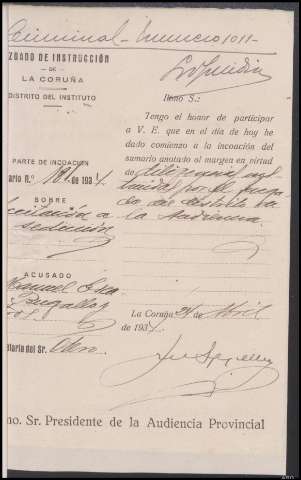 Criminal - Numero 1011 -
ZGADO DE INSTRUCCIÓN
- DE -
LA CORUÑA
DISTRITO DEL INSTITUTO
Ilmo S.:
Tengo el honor de participar
a V. E. que en el día de hoy he
dado comienzo a la incoación del
sumario anotado al margen en virtud
de diligencias
por el Juzga-
la Audiencia.
PARTE DE INCOACIÓN
ario N.º 181 de 1934.
SOBRE
citación a
sedición
ACUSADO
Manuel
Bugallo y
La Coruña 24 de Abril
de 1934.
etario del Sr. Otero
mo. Sr. Presidente de la Audiencia Provincial